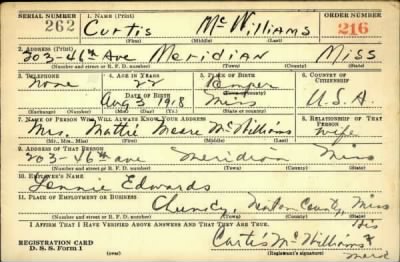 SERIAL NUMBER 1. NAME (Print) ORDER NUMBER
262 Curtis McWilliams 216
(First) (Middle) (Last)
2. ADDRESS (Print)
203-46th Ave Meridian Miss
(Number and street or R. F. D. number) (Town) (County) (State)
3. TELEPHONE 4. AGE IN YEARS 5. PLACE OF BIRTH 6. COUNTRY OF CITIZENSHIP
None 22 Kemper
DATE OF BIRTH (Town or county)
Aug 3 1918 Miss U.S.A.
(Exchange) (Number) (Mo.) (Day) (Yr.) (State or country)
7. NAME OF PERSON WHO WILL ALWAYS KNOW YOUR ADDRESS 8. RELATIONSHIP OF THAT PERSON
Mrs. Mattie McWilliams wife
(Mr., Mrs., Miss) (First) (Middle) (Last)
9. ADDRESS OF THAT PERSON
203-46th ave Meridian Miss
(Number and street or R. F. D. number) (Town) (County) (State)
10. EMPLOYER'S NAME
Edwards
11. PLACE OF EMPLOYMENT OR BUSINESS
Chunky, Newton County, Miss
(Number and street or R. F. D. number) (Town) (County) (State)
I AFFIRM THAT I HAVE VERIFIED ABOVE ANSWERS AND THAT THEY ARE TRUE. His
REGISTRATION CARD Curtis McWilliams x
D. S. S. Form 1 (Registrant's signature)